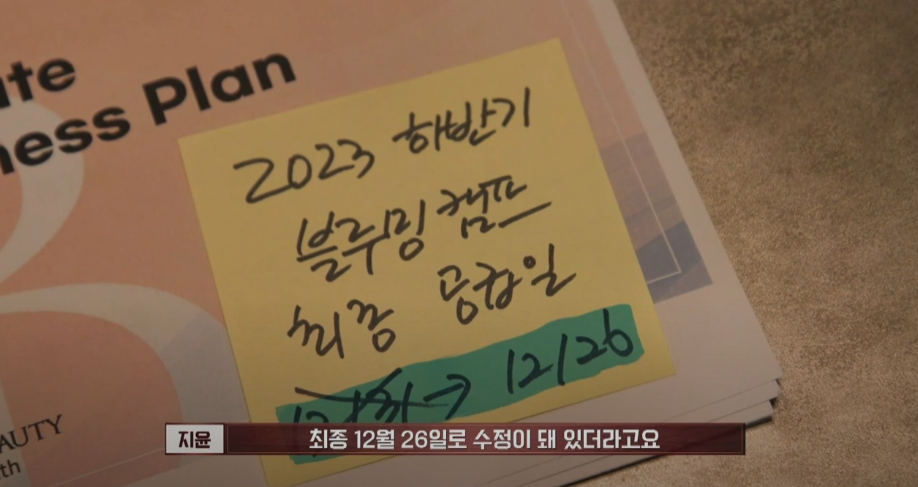 ate
ness Plan
2023 하반기
블루밍 캠프
최종 공급일
→ 12/26
EAUTY
th
지윤
최종 12월 26일로 수정이 돼 있더라고요